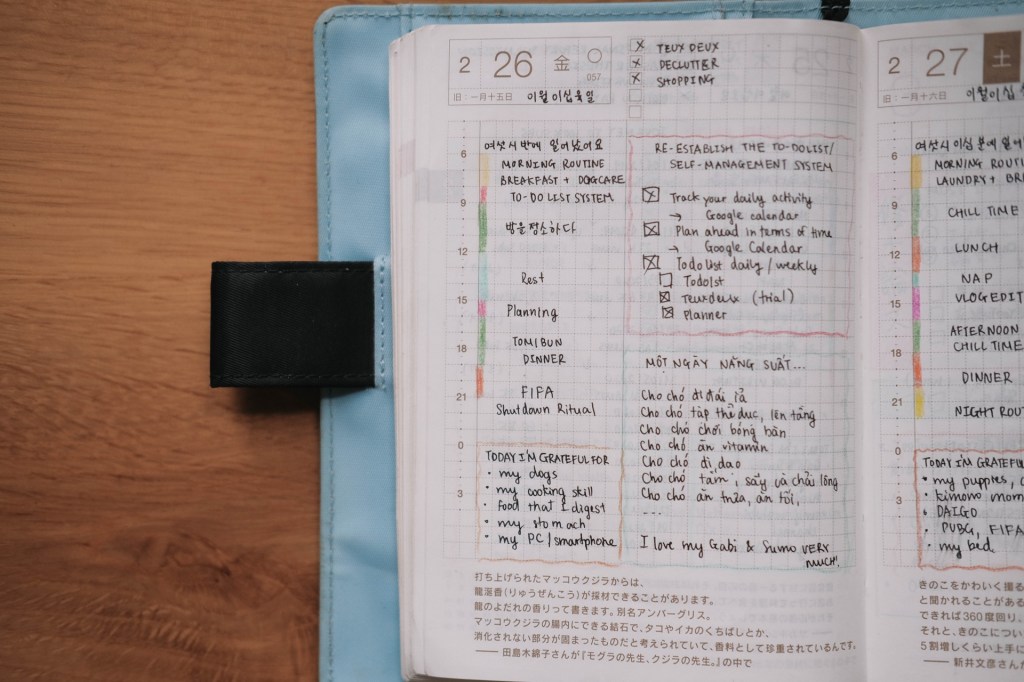 2 26 金
057
旧:一月十五日 이월 이십 육 일
x TEUX DEUX
x DECLUTTER
x SHOPPING
여섯 시 반에 일어났어요
6 MORNING ROUTINE
BREAKFAST + DOGCARE
9 TO-DO LIST SYSTEM
방을 정소하다
12
Rest
15 Planning
TOMIBUN
18 DINNER
21 FIFA
Shutdown Ritual
0
3
TODAY I'M GRATEFUL FOR
• my dogs
• my cooking skill
• food that I digest
• my stomach
• my PC/smartphone
RE-ESTABLISH THE TO-DO LIST/
SELF-MANAGEMENT SYSTEM
Track your daily activity
→ Google calendar
Plan ahead in terms of time
→ Google Calendar
Todo list daily / weekly
Todoist
Teuxdeux (trial)
Planner
MỘT NGÀY NĂNG SUẤT...
Cho chó đi đái ỉa
Cho chó tập thể dục, lên tầng
Cho chó chơi bóng bàn
Cho chó ăn vitamin
Cho chó đi dạo
Cho chó tắm, sấy và chải lông
Cho chó ăn trưa, ăn tối,
...
I love my Gabi & Sumo VERY
MUCH!
打ち上げられたマッコウクジラからは、
龍涎香(りゅうぜんこう)が採材できることがあります。
龍のよだれの香りって書きます。別名アンバーグリス。
マッコウクジラの腸内にできる結石で、タコやイカのくちばしとか、
消化されない部分が固まったものだと考えられていて、香料として珍重されているんです。
―― 田島木綿子さんが『モグラの先生、クジラの先生。』の中で
2 27 土
旧:一月十六日 이월 이십
여섯 시 이십 분에 일어
6 MORNING ROUTI
LAUNDRY + BR
9 CHILL TIME
12 LUNCH
NAP
15 VLOG EDIT
AFTERNOON
18 CHILL TIME
DINNER
21 NIGHT ROU
0
3
TODAY I'M GRATEFU
• my puppies,
• kimono mom
• DAIGO
• PUBG, FIFA
• my bed.
きのこをかわいく撮る
と聞かれることがある
できれば360度回り。
それと、きのこについ
5割増しくらい上手に
―― 新井文彦さんが